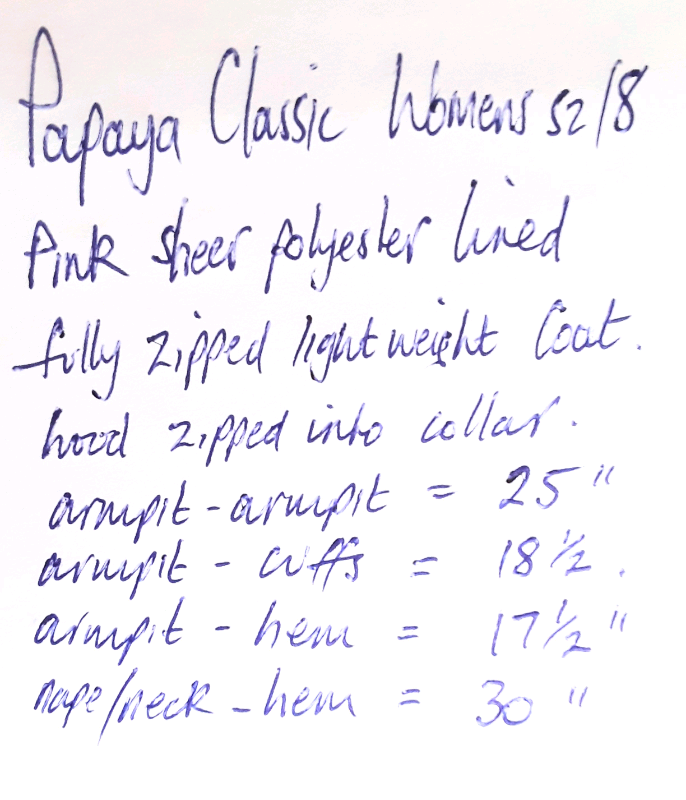 Papaya Classic Womens sz/8
Pink sheer polyester lined
fully zipped light weight Coat.
hood zipped into collar.
armpit - armpit = 25"
armpit - cuffs = 18 1/2.
armpit - hem = 17 1/2"
nape/neck - hem = 30"